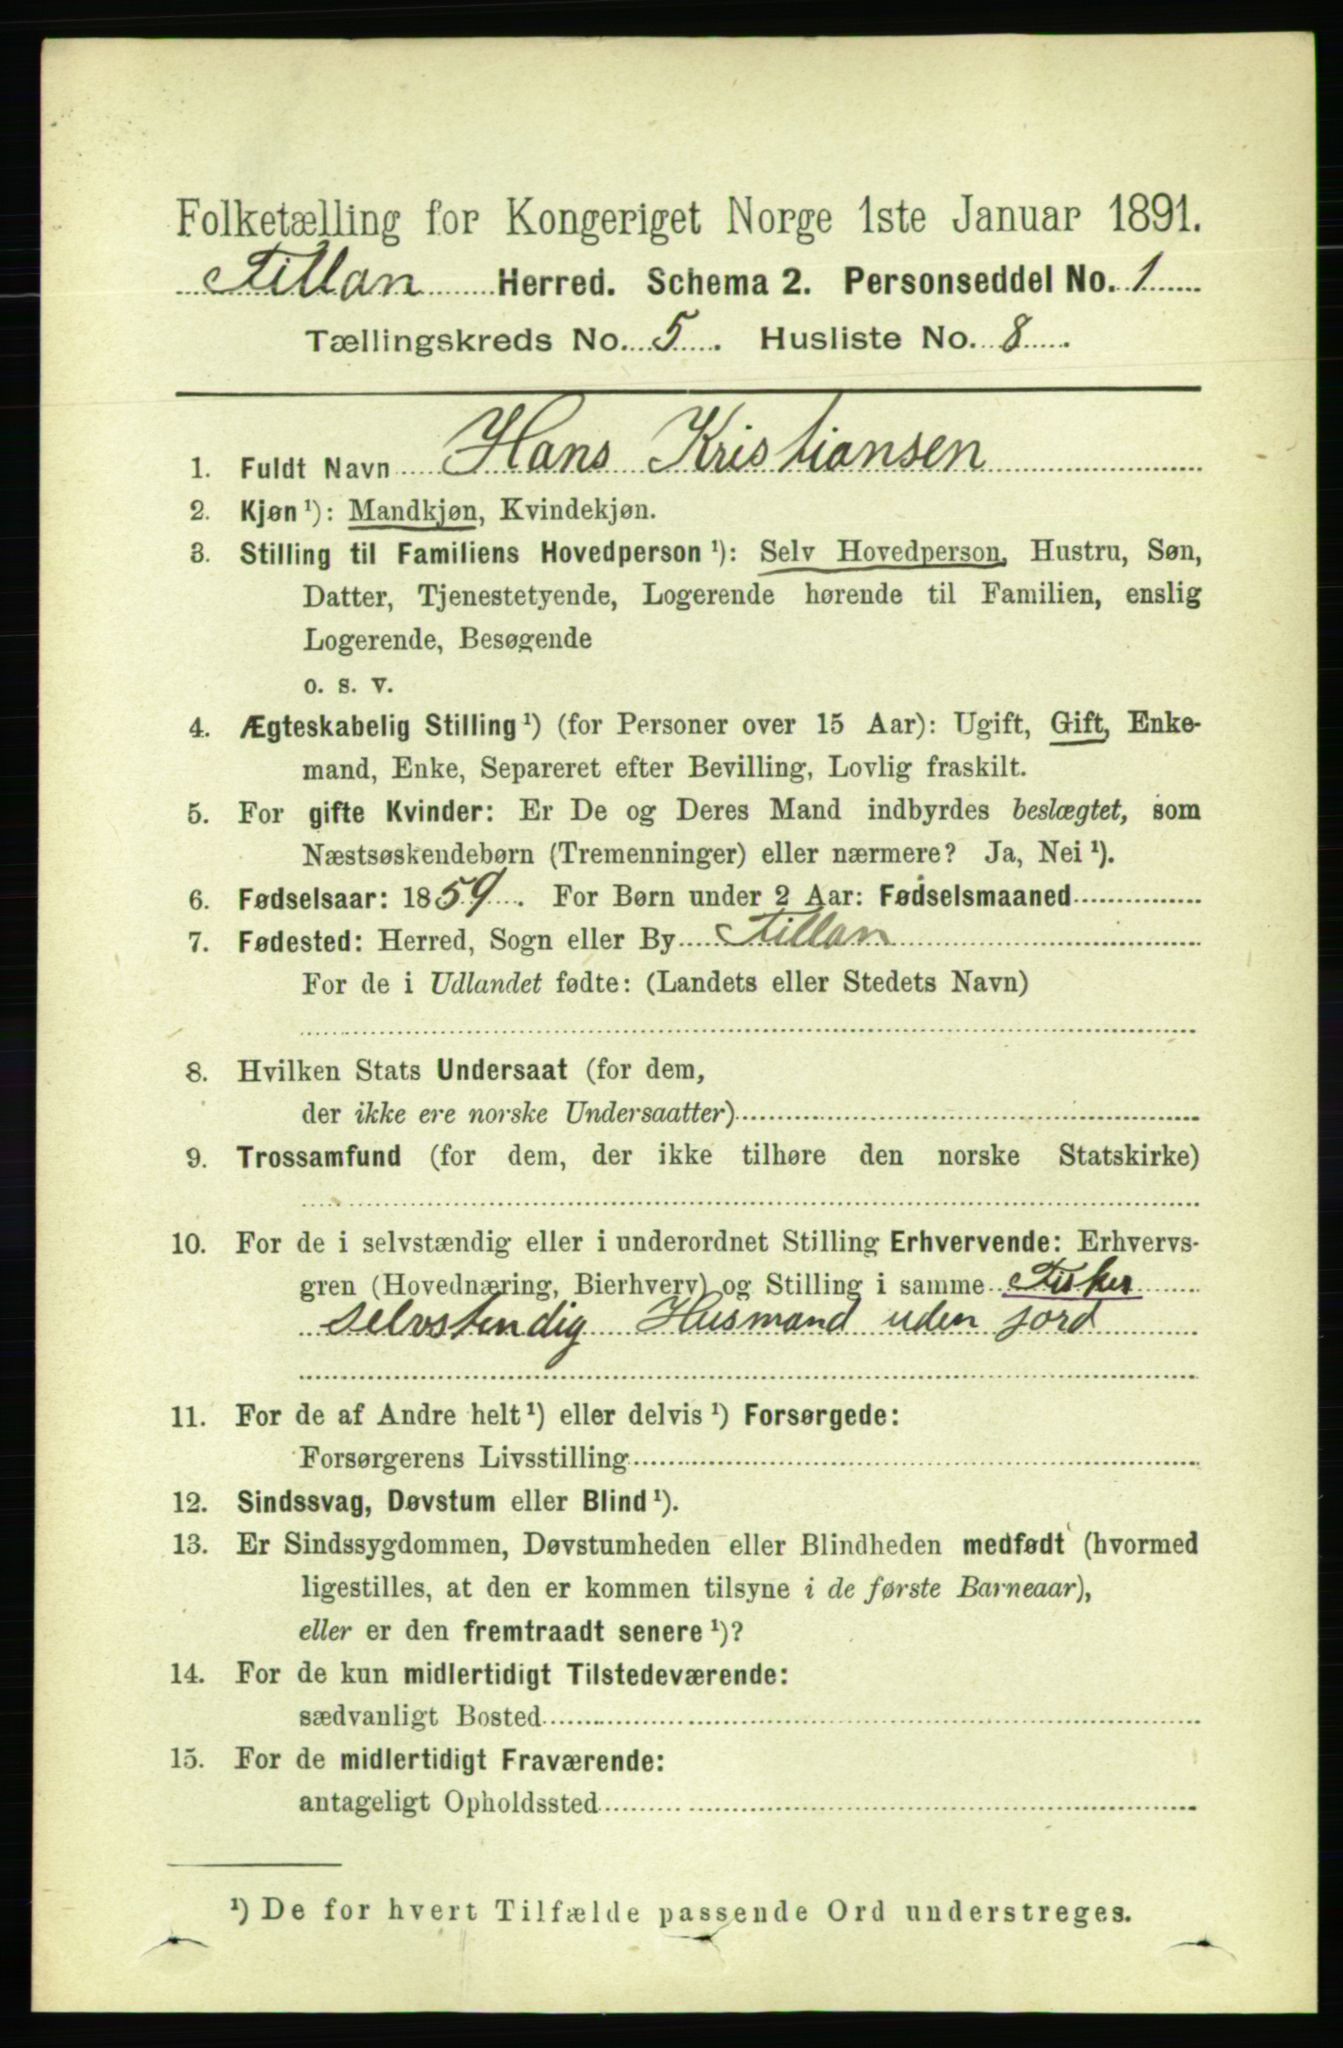 Folketælling for Kongeriget Norge 1ste Januar 1891.
Fillan Herred. Schema 2. Personseddel No. 1
Tællingskreds No. 5. Husliste No. 8
1. Fuldt Navn Hans Kristiansen
2. Kjøn¹): Mandkjøn, Kvindekjøn.
3. Stilling til Familiens Hovedperson¹): Selv Hovedperson, Hustru, Søn,
Datter, Tjenestetyende, Logerende hørende til Familien, enslig
Logerende, Besøgende
o. s. v.
4. Ægteskabelig Stilling¹) (for Personer over 15 Aar): Ugift, Gift, Enke-
mand, Enke, Separeret efter Bevilling, Lovlig fraskilt.
5. For gifte Kvinder: Er De og Deres Mand indbyrdes beslægtet, som
Næstsøskendebørn (Tremenninger) eller nærmere? Ja, Nei¹).
6. Fødselsaar: 1859. For Børn under 2 Aar: Fødselsmaaned
7. Fødested: Herred, Sogn eller By Fillan
For de i Udlandet fødte: (Landets eller Stedets Navn)
8. Hvilken Stats Undersaat (for dem,
der ikke ere norske Undersaatter)
9. Trossamfund (for dem, der ikke tilhøre den norske Statskirke)
10. For de i selvstændig eller i underordnet Stilling Erhvervende: Erhvervs-
gren (Hovednæring, Bierhverv) og Stilling i samme Fisker
selvstendig Husmand uden jord
11. For de af Andre helt¹) eller delvis¹) Forsørgede:
Forsørgerens Livsstilling
12. Sindssvag, Døvstum eller Blind¹).
13. Er Sindssygdommen, Døvstumheden eller Blindheden medfødt (hvormed
ligestilles, at den er kommen tilsyne i de første Barneaar),
eller er den fremtraadt senere¹)?
14. For de kun midlertidigt Tilstedeværende:
sædvanligt Bosted
15. For de midlertidigt Fraværende:
antageligt Opholdssted
¹) De for hvert Tilfælde passende Ord understreges.